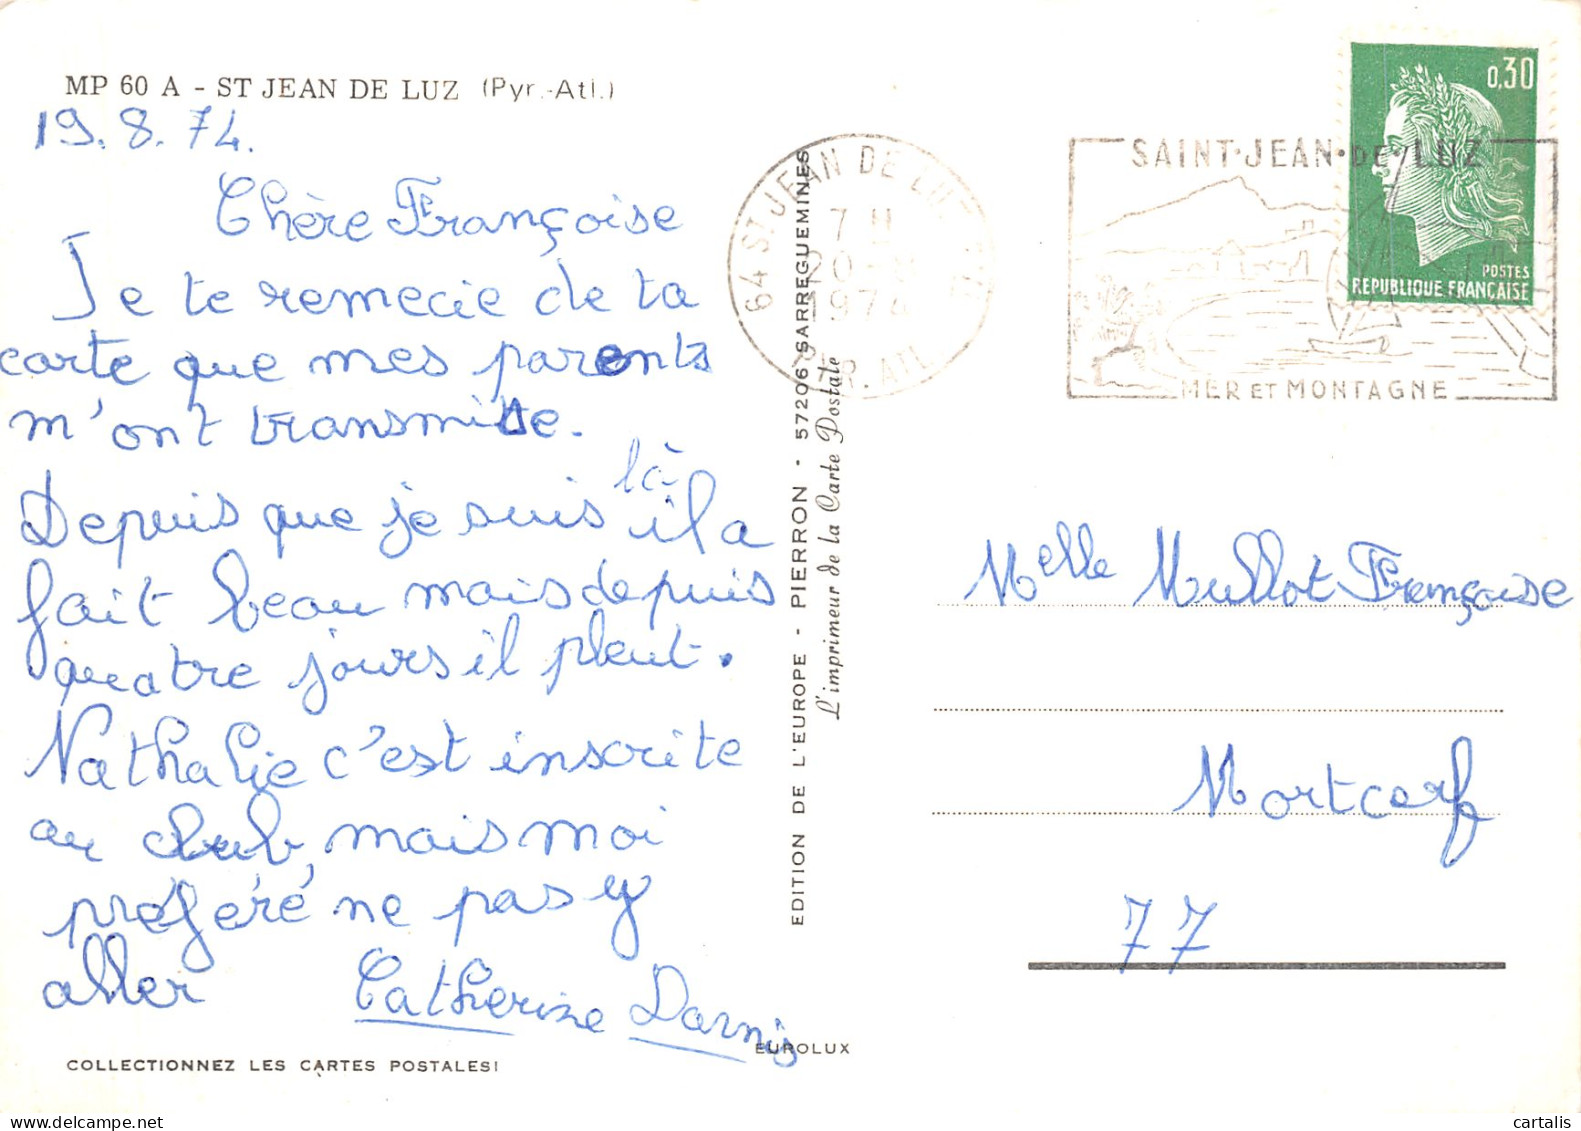 MP 60 A - ST JEAN DE LUZ (Pyr.-Atl.)
19.8.74.
Chère Françoise
Je te remecie de ta
carte que mes parents
m'ont transmise.
Depuis que je suis là il a
fait beau mais depuis
quatre jours il pleut.
Nathalie c'est inscrite
au club, mais moi
préféré ne pas y
aller Catherine Darnis
COLLECTIONNEZ LES CARTES POSTALES!
EUROLUX
EDITION DE L'EUROPE - PIERRON - 57206 SARREGUEMINES
L'imprimeur de la Carte Postale
64 ST JEAN DE LUZ
7 H
20-8
1974
PYR. ATL
SAINT·JEAN·DE·LUZ
MER ET MONTAGNE
0,30
POSTES
REPUBLIQUE FRANÇAISE
Melle Mullot Françoise
Mortcerf
77
cartalis